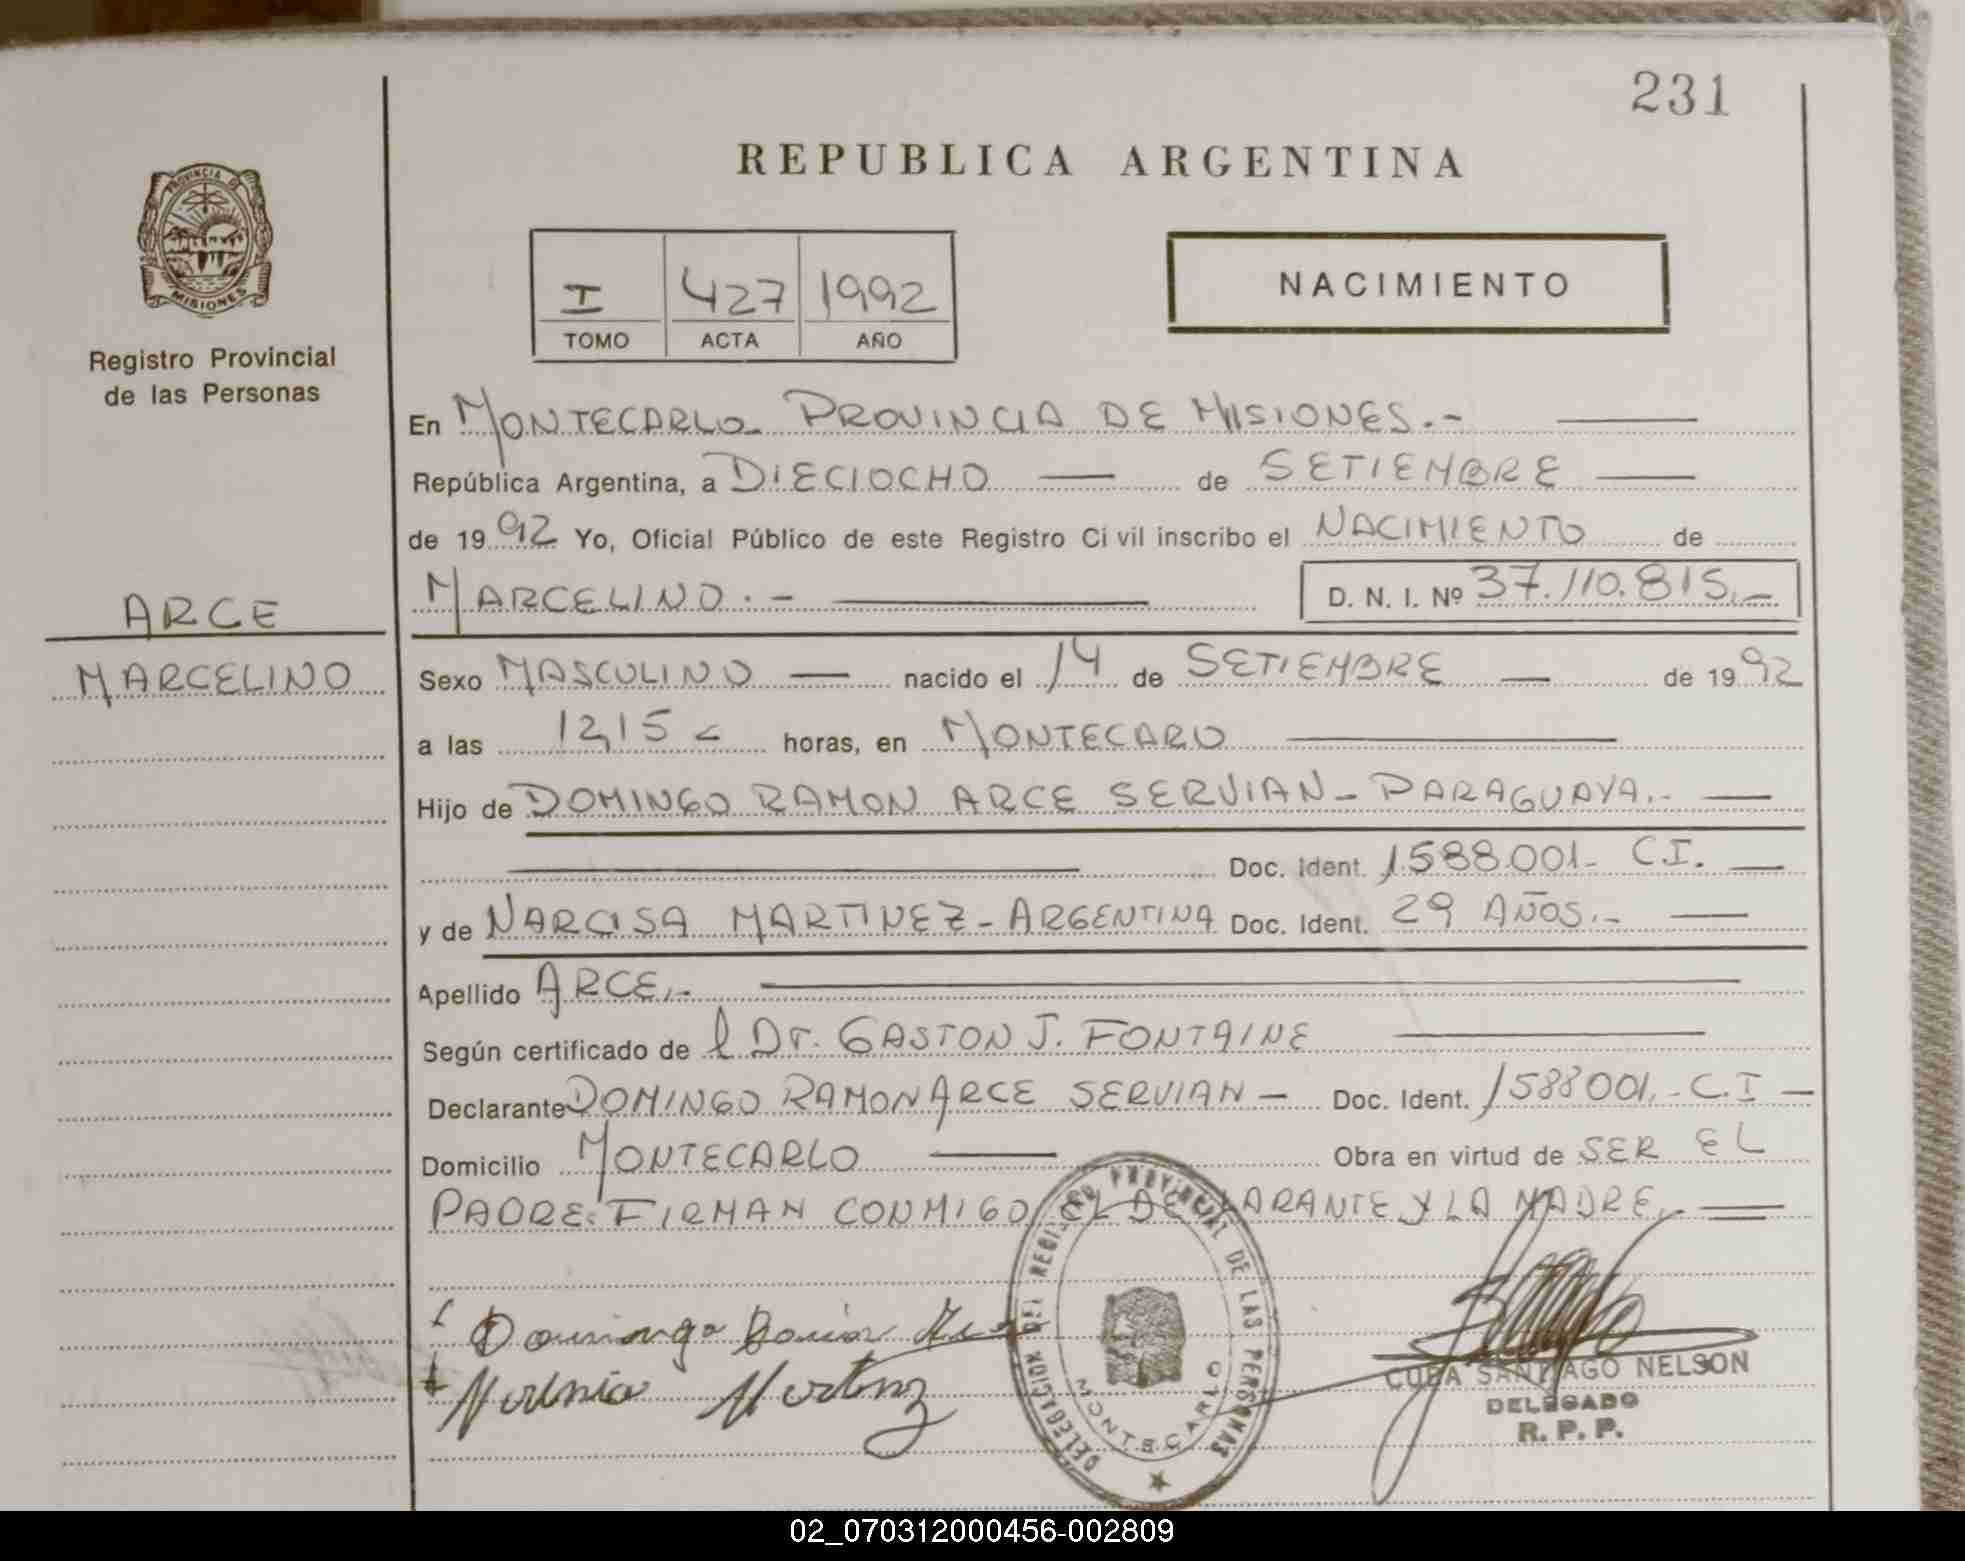 231
REPUBLICA ARGENTINA
PROVINCIA DE
MISIONES
Registro Provincial
de las Personas
I 427 1992
TOMO ACTA AÑO
NACIMIENTO
En MONTECARLO - PROVINCIA DE MISIONES.-
República Argentina, a DIECIOCHO — de SETIEMBRE —
de 1992 Yo, Oficial Público de este Registro Civil inscribo el NACIMIENTO de
MARCELINO.- — D. N. I. Nº 37.110.815.-
ARCE
MARCELINO
Sexo MASCULINO — nacido el 14 de SETIEMBRE — de 1992
a las 12,15 horas, en MONTECARLO —
Hijo de DOMINGO RAMON ARCE SERVIAN - PARAGUAYA.- —
— Doc. Ident. 1.588.001- C.I. —
y de NARCISA MARTINEZ - ARGENTINA Doc. Ident. 29 AÑOS.- —
Apellido ARCE.- —
Según certificado de l Dr. GASTON J. FONTAINE —
Declarante DOMINGO RAMON ARCE SERVIAN — Doc. Ident. 1588001.- C.I —
Domicilio MONTECARLO — Obra en virtud de SER EL
PADRE: FIRMAN CONMIGO EL DECLARANTE Y LA MADRE.- —
DELEGACION DEL REGISTRO PROVINCIAL DE LAS PERSONAS
MONTECARLO
Domingo Ramon Arce
Martinez
CUBA SANTIAGO NELSON
DELEGADO
R. P. P.
02_070312000456-002809